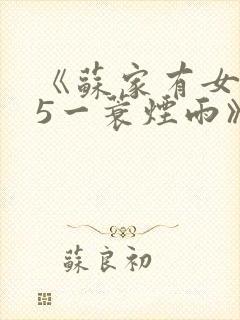 《蘇家有女
5一蓑煙雨》
蘇良初